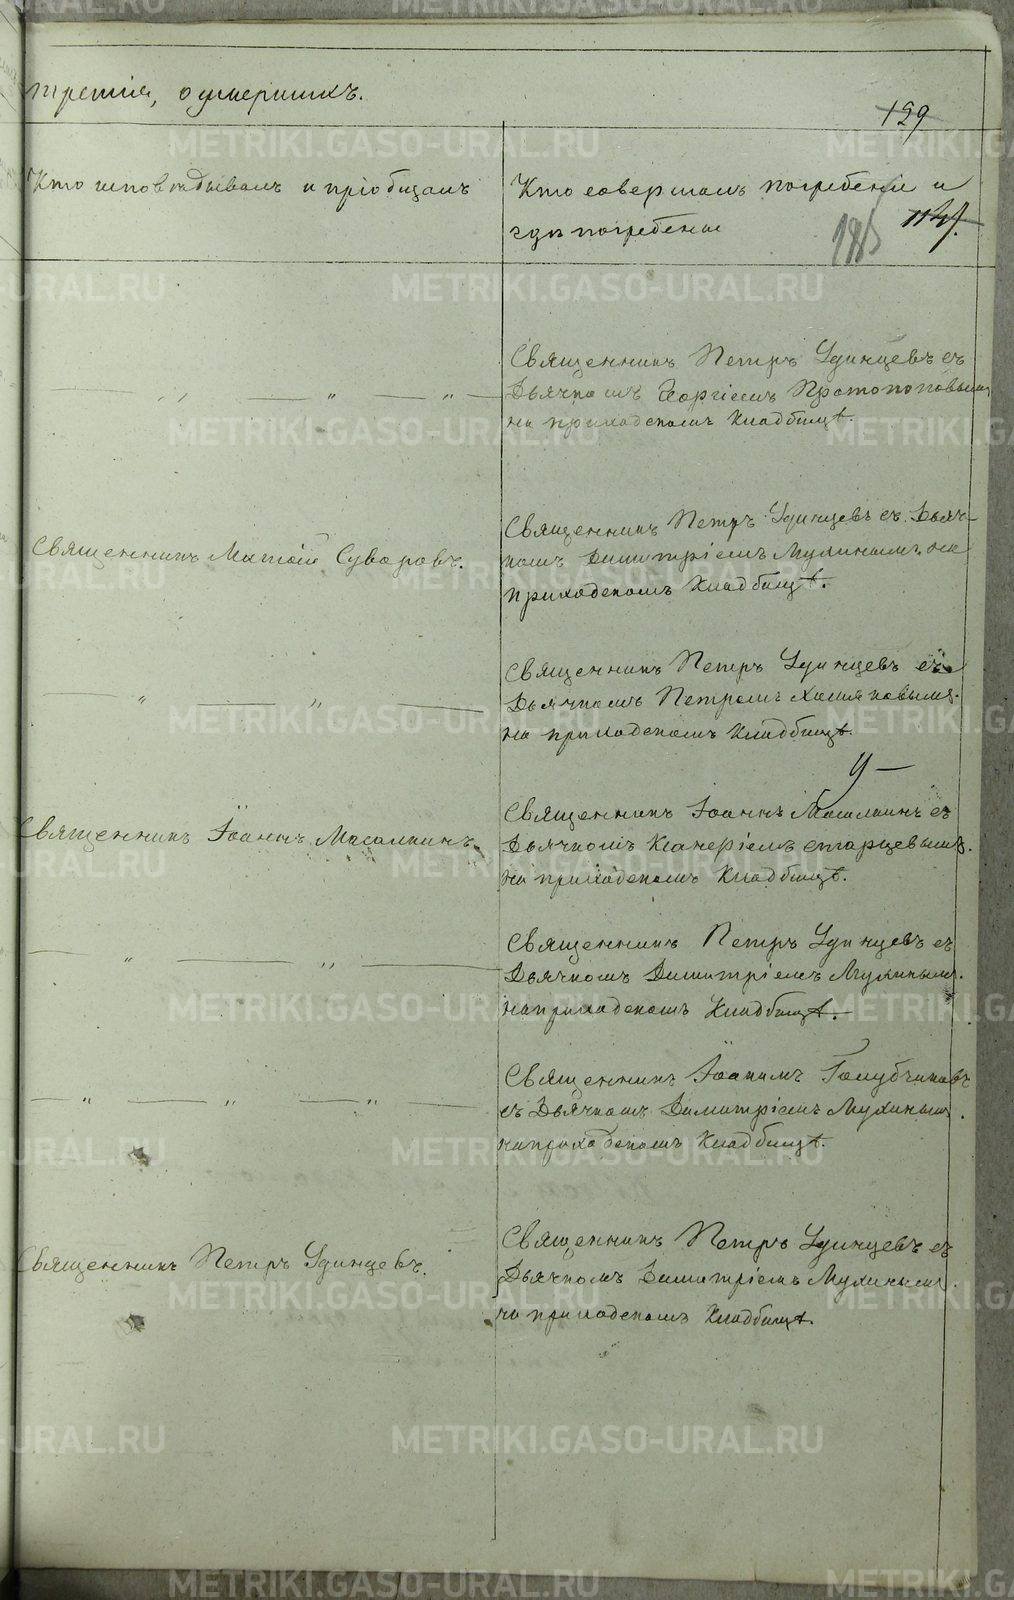 третія, о умершихъ.
159
Кто исповѣдывалъ и пріобщалъ
Кто совершалъ погребеніе и
гдѣ погребены
185
Священникъ Петръ Удинцевъ съ
Дьячкомъ Георгіемъ Протопоповымъ
на приходскомъ Кладбищѣ.
Священникъ Матѳій Суворовъ.
Священникъ Петръ Удинцевъ съ Дьяч-
комъ Димитріемъ Мухинымъ на
приходскомъ Кладбищѣ.
Священникъ Петръ Удинцевъ съ
Дьячкомъ Петромъ Хомяковымъ
на приходскомъ Кладбищѣ.
Священникъ Іоаннъ Масалкинъ.
Священникъ Іоаннъ Масалкинъ съ
Дьячкомъ Старцевымъ.
на приходскомъ Кладбищѣ.
Священникъ Петръ Удинцевъ съ
Дьячкомъ Димитріемъ Мухинымъ.
на приходскомъ Кладбищѣ.
Священникъ Іоакимъ Голубчиковъ
съ Дьячкомъ Димитріемъ Мухинымъ.
на приходскомъ Кладбищѣ.
Священникъ Петръ Удинцевъ.
Священникъ Петръ Удинцевъ съ
Дьячкомъ Димитріемъ Мухинымъ.
на приходскомъ Кладбищѣ.
METRIKI.GASO-URAL.RU